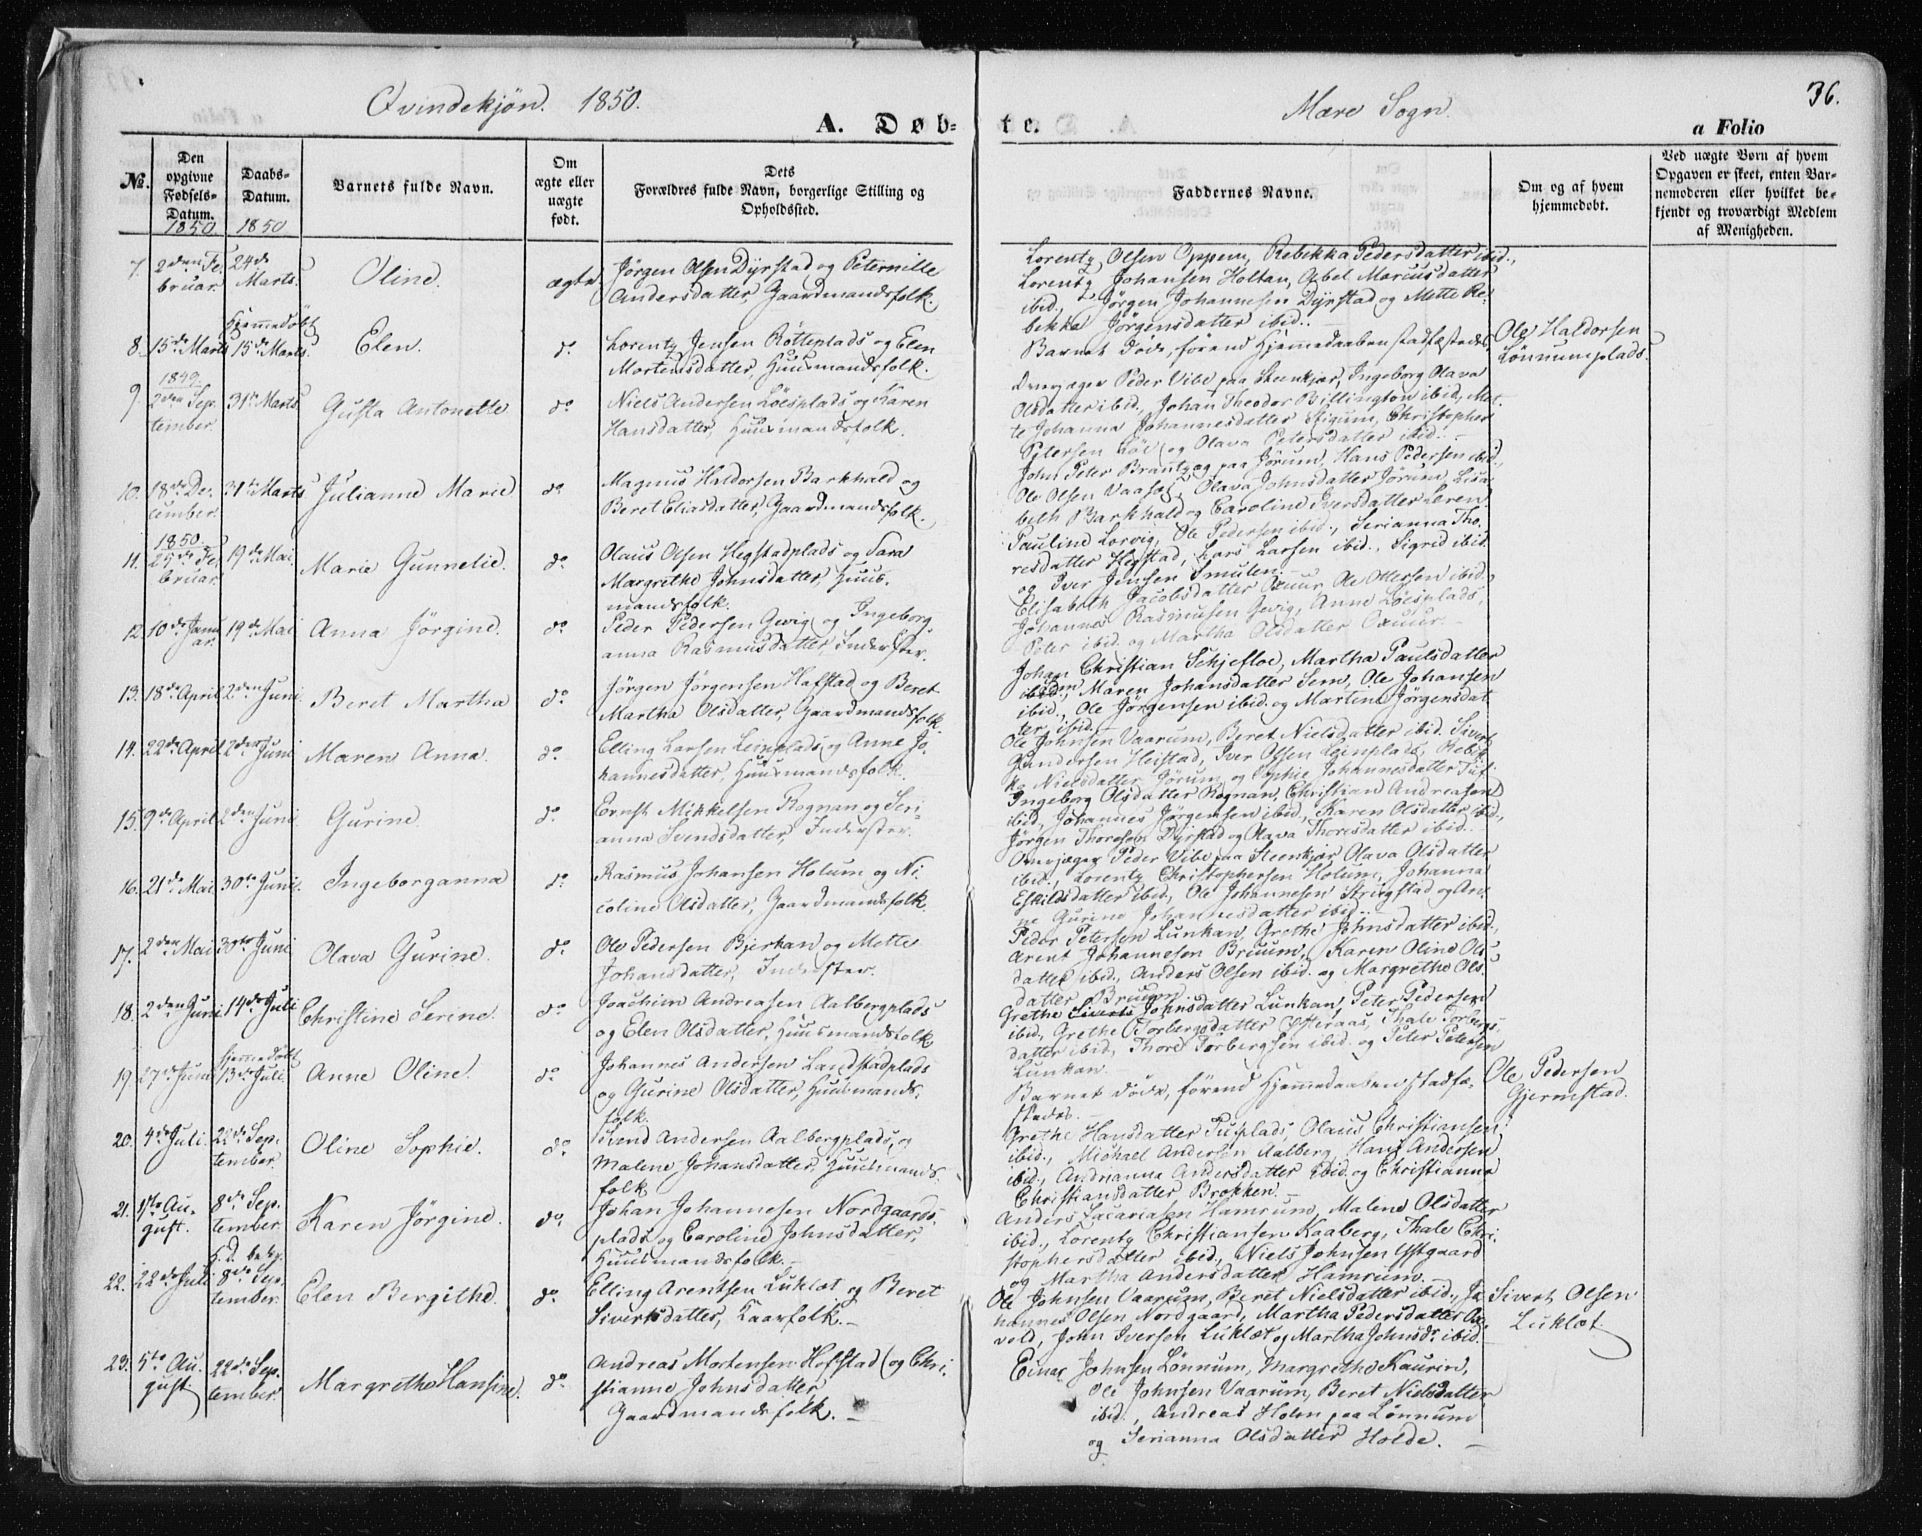 Qvindekjøn. 1850.
Mære Sogn.
36.
A. Døb-
te.
a Folio
No.
Den opgivne Fødsels-Datum.
1850
Daabs-Datum.
1850
Barnets fulde Navn.
Om ægte eller uægte født.
Dets Forældres fulde Navn, borgerlige Stilling og Opholdssted.
Faddernes Navne.
Om og af hvem hjemmedøbt.
Ved uægte Børn af hvem Opgaven er skeet, enten Barnemoderen eller hvilket bekjendt og troværdigt Medlem af Menigheden.
7. 2den Februar. 24de Marts. Oline. ægte
Jørgen Olsen Dyrstad og Peternille
Andersdatter, Gaardmandsfolk.
Lorentz Olsen Oppem, Rebekka Pedersdatter ibid.,
Lorentz Johansen Holtan, Asbel Marcusdatter
ibid., Jørgen Johannesen Dyrstad og Mette Re-
bekka Jørgensdatter ibid..
8. 15de Marts Hjemmedøbt 15de Marts. Elen. do
Lorentz Jensen Røtteplads og Elen
Mortensdatter, Huusmandsfolk.
Barnet døde, førend Hjemmedaaben stadfæstedes.
Ole Haldorsen
Lønnumsplads.
9. 1849 2den September. 31te Marts. Gusta Antonette do
Niels Andersen Løesplads og Karen
Hansdatter, Huusmandsfolk.
Overjæger Peder Vibe paa Steenkjær, Ingeborg Olava
Olsdatter ibid., Johan Theodor Billington ibid, Met-
te Johanna Johannesdatter Stigum, Christopher
Petersen Løe og Olava Petersdatter ibid. –
10. 18de December. 31te Marts Julianne Marie do
Magnus Haldorsen Barkhald og
Beret Eliasdatter, Gaardmandsfolk.
John Peter Brantzæg paa Jørum, Hans Pedersen ibid.,
Ole Olsen Vaasæt, Olava Johnsdatter Jørum, Lisa-
beth Barkhald og Caroline Iversdatter Leren
11. 1850. 25de Februar. 19de Mai. Marie Gunnelie. do
Olaus Olsen Hegstadplads og Sara
Margrethe Johnsdatter, Huus-
mandsfolk.
Pauline Lorvig, Ole Pedersen ibid., Serianna Tho-
resdatter Hegstad, Lars Larsen ibid., Sigrid ibid.
og Iver Jensen Smulen. –
12 10de Januar. 19de Mai Anna Jørgine. do
Peder Pedersen Gevig og Ingeborg
anna Rasmusdatter, Inderster.
Elisabeth Jacobsdatter Oxuur, Ole Ottersen ibid.,
Johannes Rasmusen Gevig, Anne Løesplads,
Peter ibid. og Martha Olsdatter Oxuur. –
13. 18de April 2den Juni Beret Martha do
Jørgen Jørgensen Hafstad og Beret
Martha Olsdatter, Gaardmandsfolk.
Johan Christian Schjefloe, Martha Paulsdatter
Sem, Maren Johansdatter Sem, Ole Johansen
ibid., Ole Jørgensen ibid. og Martine Jørgensdat-
ter ibid. –
14. 22de April 2den Juni Maren Anna. do
Elling Larsen Leinplads og Anne Jo-
hannesdatter, Huusmandsfolk.
Ole Johnsen Vaarum, Beret Nielsdatter ibid. Sivert
Gundersen Heistad, Iver Olsen Leinplads, Rebek-
ka Nielsdatter Jørum og Sophie Johannesdatter Tuf.
15. 9de April 2den Juni Gurine do
Ernst Mikkelsen Rognan og Seri-
anna Svendsdatter, Inderster.
Ingeborg Olsdatter Rognan, Christian Andreasen
ibid., Johannes Jørgensen ibid, Karen Olsdatter ibid.,
Jørgen Thoresen Dyrstad og Olava Thoresdatter ibid..
16. 21de Mai 30te Juni. Ingeborganna do
Rasmus Johansen Holum og Ni-
coline Olsdatter, Gaardmandsfolk.
Overjæger Peder Vibe paa Steenkjær, Olava Olsdatter
ibid., Lorentz Christophersen Holum, Johanna
Eskildsdatter ibid, Ole Johannesen Strugstad og An-
ne Gurine Johannesdatter ibid..
17. 2den Mai 30te Juni Olava Gurine. do
Ole Pedersen Bjerkan og Mette
Johansdatter, Inderster.
Peder Petersen Lunkan, Grethe Johnsdatter ibid.,
Arent Johannesen Bruum, Karen Oline Ols-
datter ibid., Anders Olsen ibid. og Margrethe Ols-
datter Bruum
18. 2den Juni 14de Juli Christine Serine. do
Joachim Andreasen Aalbergplads
og Elen Olsdatter, Huusmandsfolk
Grethe Johnsdatter Lunkan, Peter Pedersen
ibid., Grethe Torbergsdatter Østeraas, Thale Torbergs-
datter ibid, Thore Torbergsen ibid. og Peter Petersen
Lunkan.
19 27de Juni Hjemmedøbt 13de Juli. Anne Oline. do
Johannes Andersen Landstadplads
og Gurine Olsdatter, Huusmands-
folk.
Barnet døde, førend Hjemmedaaben stadfæ-
stedes. –
Ole Pedersen
Gjermstad.
20. 4de Juli. 22de September. Oline Sophie. do
Svend Andersen Aalbergplads og
Malene Johansdatter, Huusmands-
folk
Grethe Hansdatter Tusplads, Olaus Christiansen
ibid., Michael Andersen Aalberg, Hans Andersen
ibid., Andrianna Andersdatter ibid. og Christianna
Christiansdatter Brokken. –
21. 1ste August. 8de September. Karen Jørgine. do
Johan Johannesen Nordgaards-
plads og Caroline Johnsdatter
Huusmandsfolk. –
Anders Zacariasen Hamrum, Malene Olsdatter
ibid., Lorentz Christiansen Kaaberg, Thale Chri-
stophersdatter ibid., Niels Johnsen Ystgaard
og Martha Andersdatter Hamrum.
22. 22de Juli H.D. bekg. 8de September. Elen Bergithe. do
Elling Arentsen Luklæt og Beret
Sivertsdatter, Kaarfolk. –
Ole Johnsen Vaarum, Beret Nielsdatter ibid., Jo-
hannes Olsen Nordgaard, Martha Pedersdatter Aa-
vold, John Iversen Luklæt og Martha Johnsdr ibid.
Sivert Olsen
Luklæt.
23. 5te August 22de September. Margrethe Hansine. do
Andreas Mortensen Hofstad og Chri-
stianne Johnsdatter
Gaardmandsfolk. –
Einar Johnsen Lønnum, Margrethe Kaurin,
Ole Johnsen Vaarum, Beret Nielsdatter
ibid., Andreas Holm paa Lønnum
og Serianna Olsdatter Holde. –